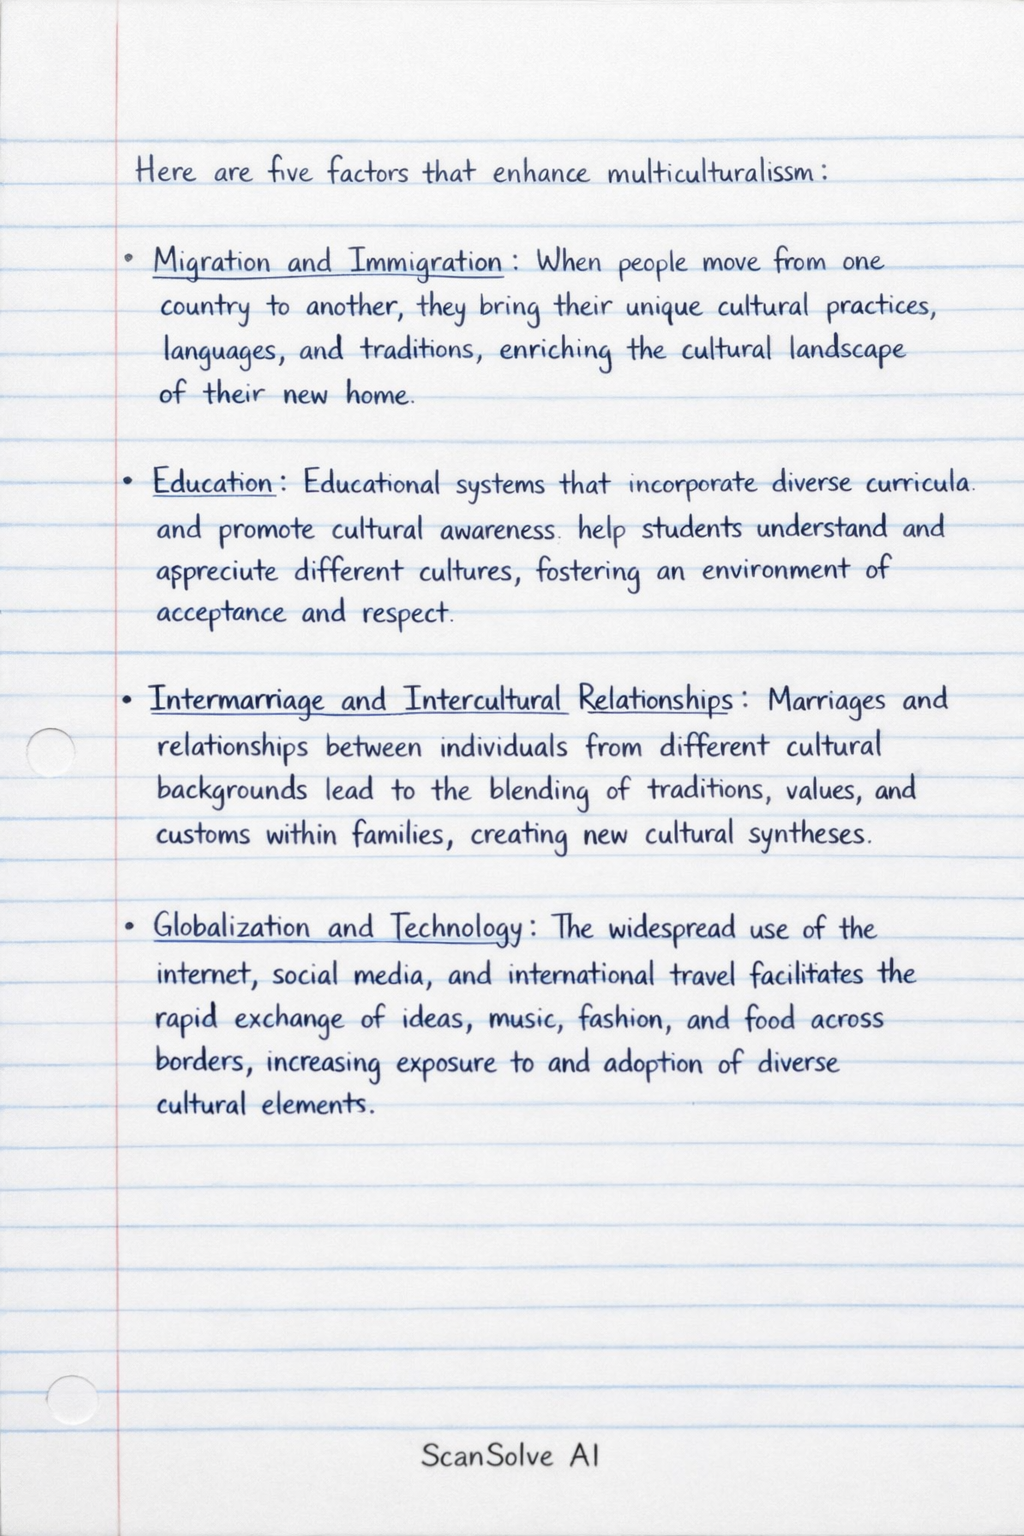 Here are five factors that enhance multiculturalissm:
• Migration and Immigration: When people move from one
country to another, they bring their unique cultural practices,
languages, and traditions, enriching the cultural landscape
of their new home.
• Education: Educational systems that incorporate diverse curricula.
and promote cultural awareness. help students understand and
appreciute different cultures, fostering an environment of
acceptance and respect.
• Intermarriage and Intercultural Relationships: Marriages and
relationships between individuals from different cultural
backgrounds lead to the blending of traditions, values, and
customs within families, creating new cultural syntheses.
• Globalization and Technology: The widespread use of the
internet, social media, and international travel facilitates the
rapid exchange of ideas, music, fashion, and food across
borders, increasing exposure to and adoption of diverse
cultural elements.
ScanSolve AI